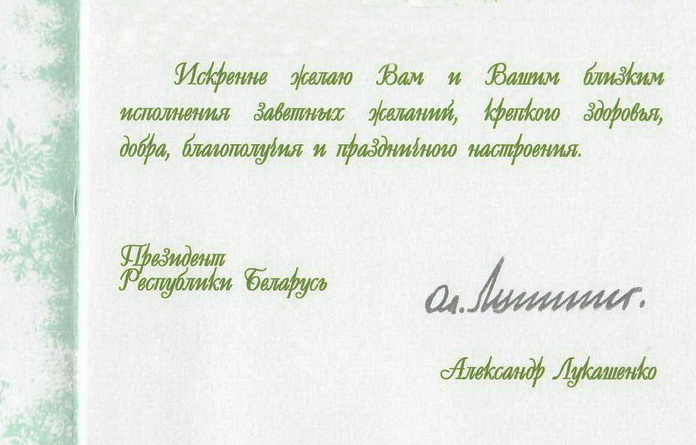 Искренне желаю Вам и Вашим близким
исполнения заветных желаний, крепкого здоровья,
добра, благополучия и праздничного настроения.
Президент
Республики Беларусь
Александр Лукашенко